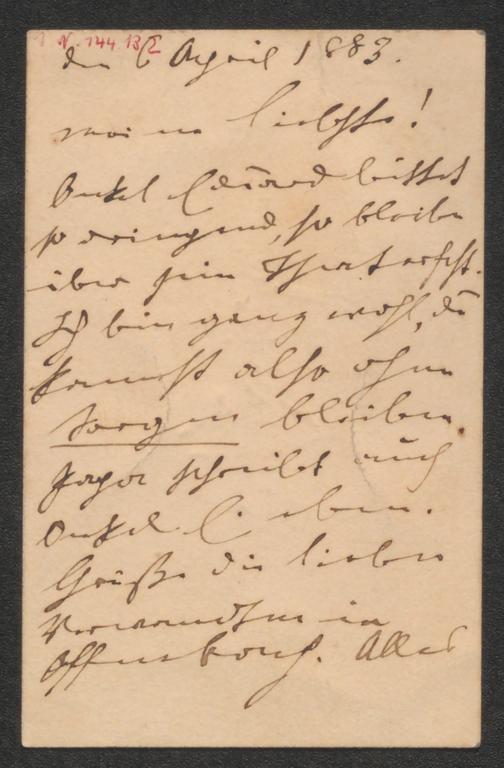 N. 144 132
den 6 April 1883.
meine Liebste!
Onkel Eduard bittet
so dringend, so bleibe
über sein Theaterfest.
Ich bin ganz wohl, du
kannst also ohne
Sorgen bleiben.
Papa schreibt auch
Onkel E. eben.
Grüße die lieben
Verwandten in
Offenbach. Alles